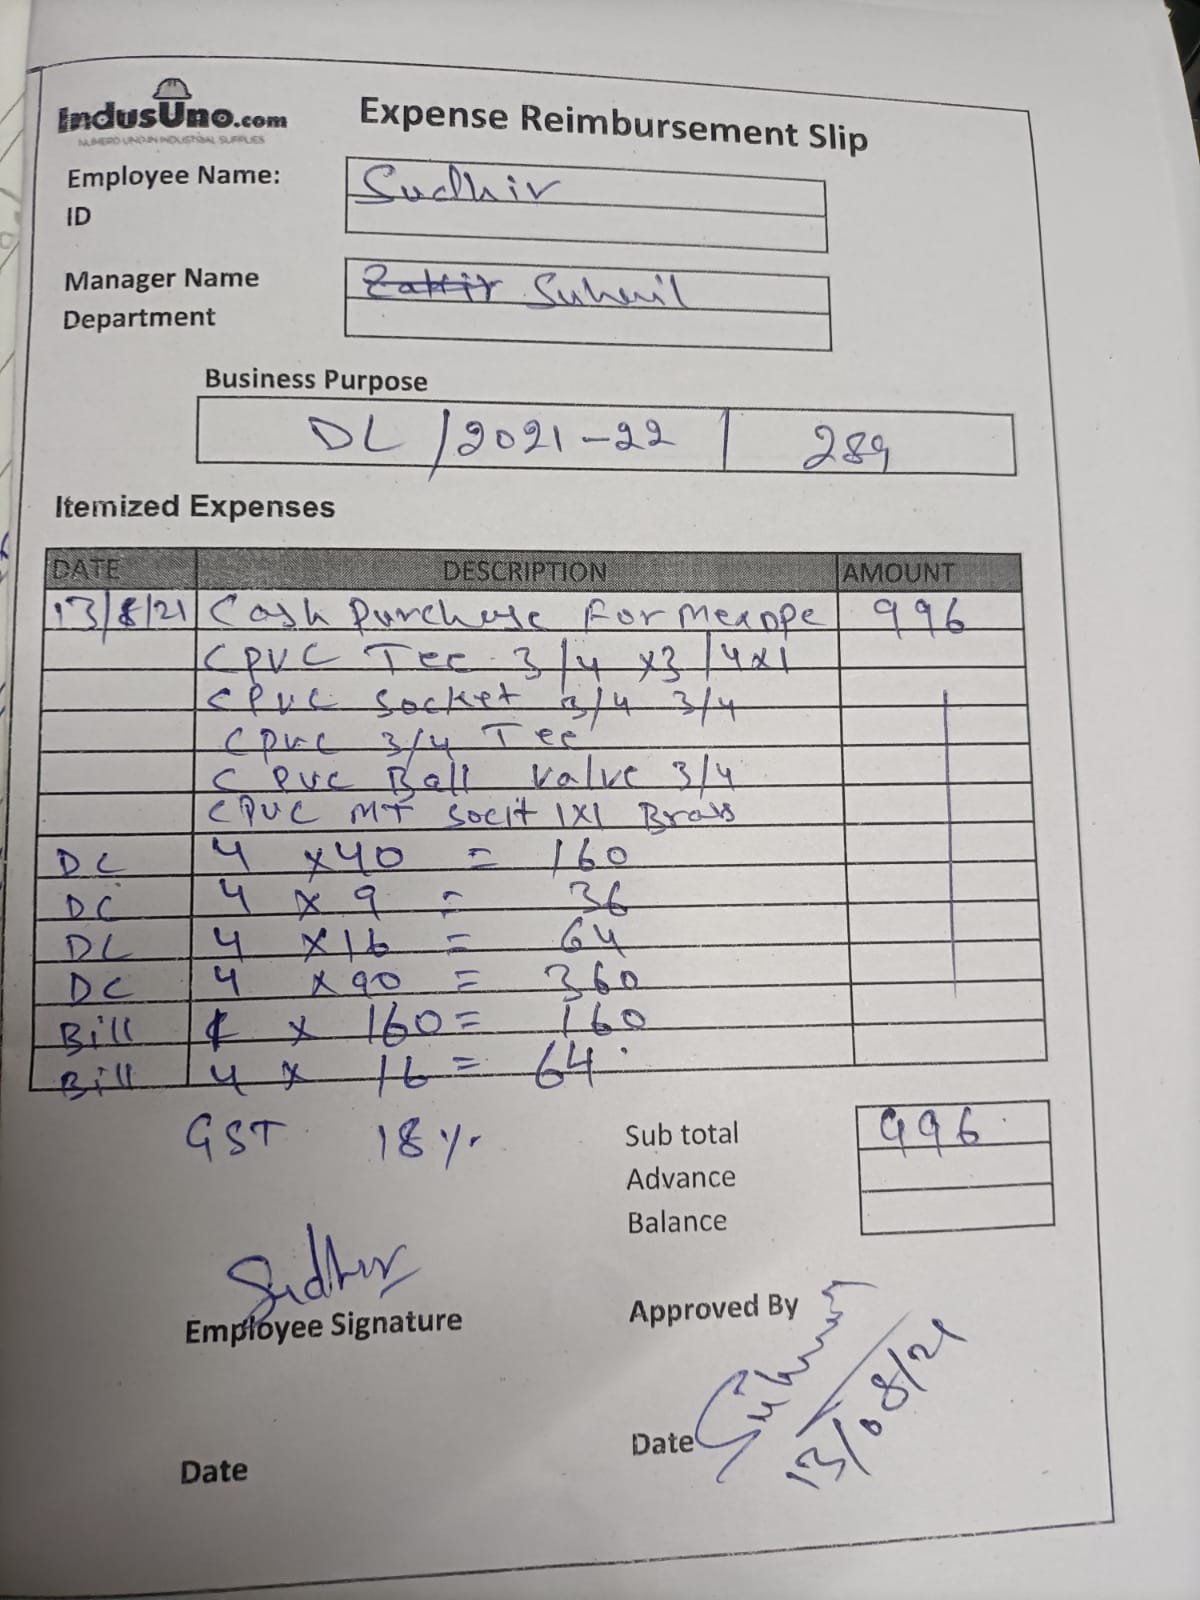 IndusUno.com
NUMERO UNO IN INDUSTRIAL SUPPLIES
Expense Reimbursement Slip
Employee Name: Sudhir
ID
Manager Name Zakir Suheil
Department
Business Purpose
DL/2021-22 | 289
Itemized Expenses
DATE DESCRIPTION AMOUNT
13/8/21 Cash Purchase For 996
CPVC Tee 3/4 x3/4x1
CPVC Socket 3/4 3/4
CPVC 3/4 Tee
CPVC Ball valve 3/4
CPVC MT Socit 1x1 Brass
DC 4 x40 = 160
DC 4 x 9 = 36
DC 4 x16 = 64
DC 4 x90 = 360
Bill x 160= 160
Bill 4 x 16 = 64
GST 18%
Sub total 996
Advance
Balance
Sudhir
Employee Signature
Approved By
Date
13/08/21
Date